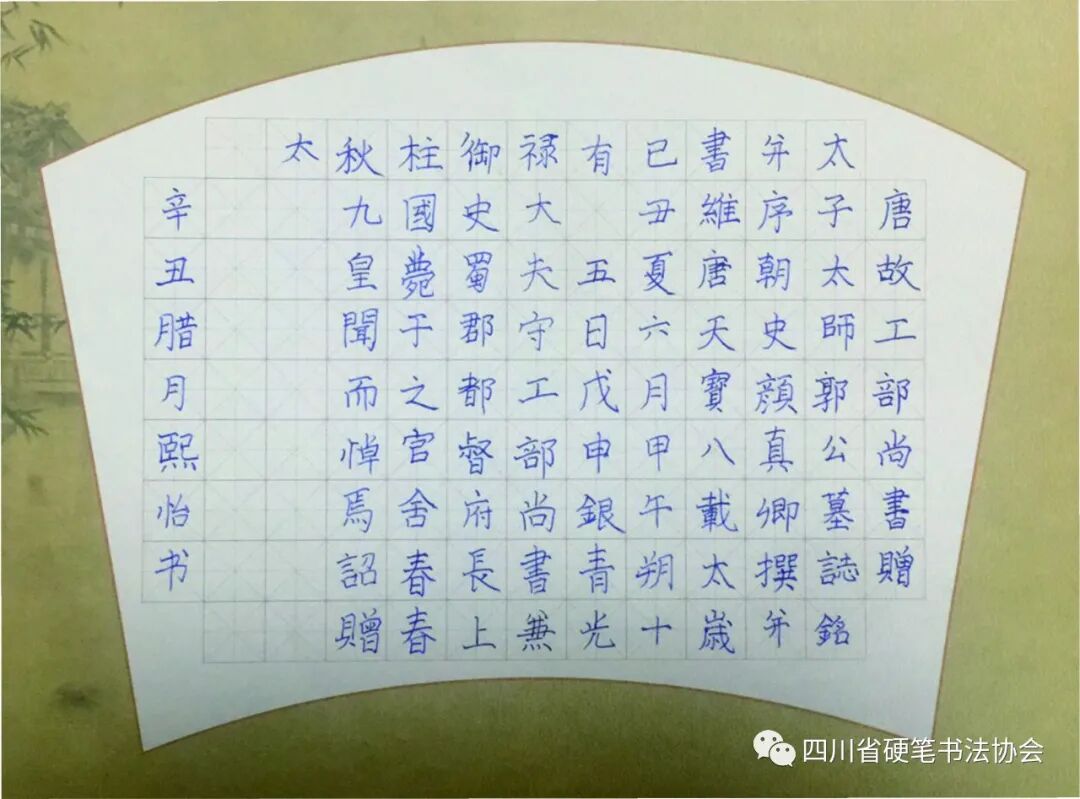 唐故工部尚書贈
太子太師郭公墓誌銘
并序朝史顔真卿撰并
書維唐天寶八載太歲
已丑夏六月甲午朔十
有五日戊申銀青光
禄大夫守工部尚書兼
御史蜀郡都督府長上
柱國薨于之官舍春春
秋九皇聞而悼焉詔贈
太
辛丑腊月熙怡书
四川省硬笔书法协会